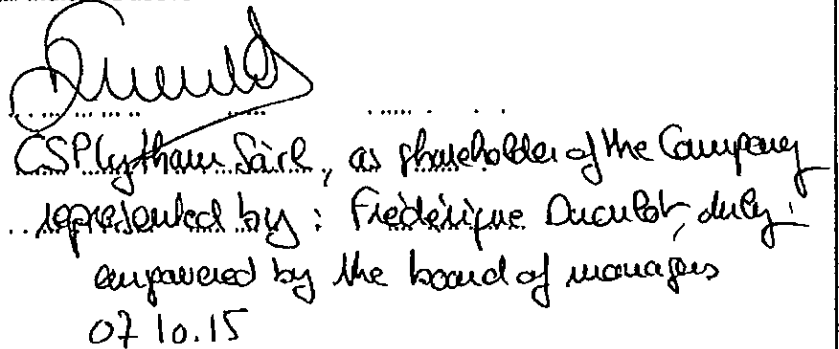 CSP Lytham Sàrl, as shareholder of the Company
represented by : Frédérique Duculot, duly
empowered by the board of managers
07 10.15